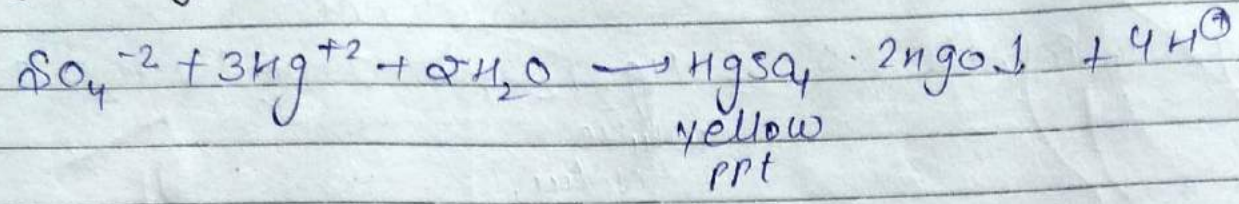 SO₄⁻² + 3Hg⁺² + 2H₂O → HgSO₄ · 2HgO↓ + 4H⊕
yellow
ppt